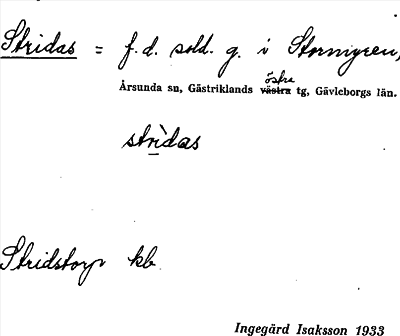 Stridas = f.d. sold. g. i Stormyren,
östra
Årsunda sn, Gästriklands västra tg, Gävleborgs län.
strìdas
Stridstorp kb
Ingegärd Isaksson 1933